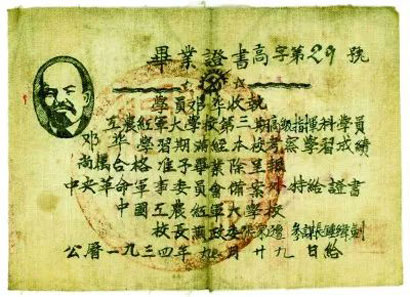 畢業證書高字第29號
學員邓華收執
工農紅軍大學校第三期高級指揮科學員
邓華學習期滿經本校考察學習成績
尚屬合格准予畢業除呈報
中央革命軍事委員會備案外特給證書
中國工農紅軍大學校
校長兼政委 參謀長鍾緯劍
公曆一九三四年 月廿九日給